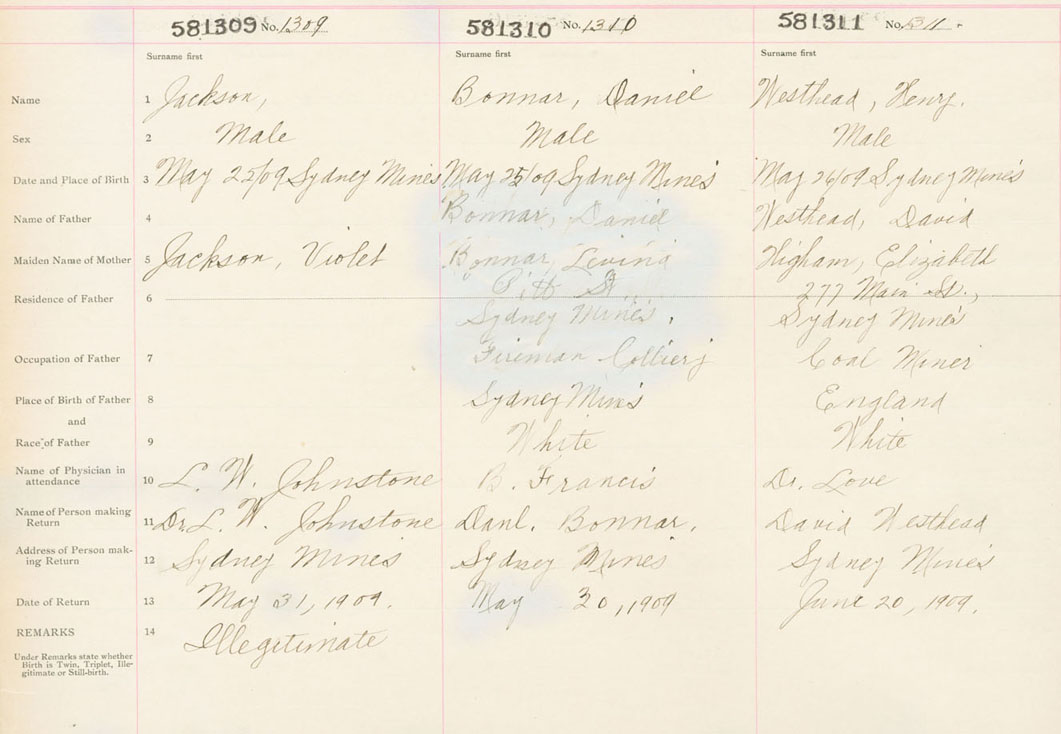 581309 No. 1309
581310 No. 1310
581311 No. 1311
Surname first
Surname first
Surname first
Name 1 Jackson, Bonnar, Daniel Westhead, Henry.
Sex 2 Male Male Male
Date and Place of Birth 3 May 25/09 Sydney Mines May 25/09 Sydney Mines May 26/09 Sydney Mines
Name of Father 4 Bonnar, Daniel Westhead, David
Maiden Name of Mother 5 Jackson, Violet Bonnar, Levina Higham, Elizabeth
Residence of Father 6 Pitt St. 277 Main St.,
Sydney Mines. Sydney Mines
Occupation of Father 7 Fireman Colliery Coal Miner
Place of Birth of Father 8 Sydney Mines England
and
Race of Father 9 White White
Name of Physician in
attendance 10 L. W. Johnstone B. Francis Dr. Love
Name of Person making
Return 11 Dr. L. W. Johnstone Danl. Bonnar. David Westhead
Address of Person mak-
ing Return 12 Sydney Mines Sydney Mines Sydney Mines
Date of Return 13 May 31, 1909. May 20, 1909 June 20, 1909.
REMARKS 14 Illegitimate
Under Remarks state whether
Birth is Twin, Triplet, Ille-
gitimate or Still-birth.